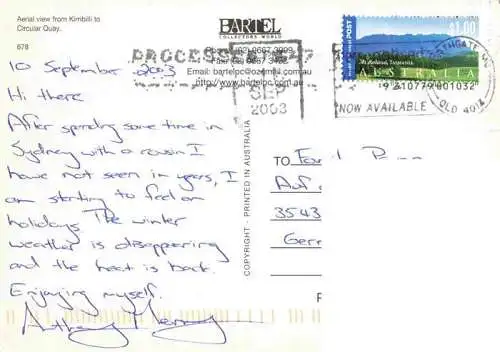 Aerial view from Kirribilli to
Circular Quay.
678
BARTEL
COLLECTORS WORLD
Phone (02) 9667 3999
Fax (02) 9667 3488
Email: bartelpc@ozemail.com.au
http://www.bartelpc.com.au
PROCESSED
SEP
2003
NOW AVAILABLE
QLD 4013
POST
$1.00
Mt Roland, Tasmania
AUSTRALIA
9 310779 801032
10 September 2003
Hi there
After spending some time in
Sydney with a cousin I
have not seen in years, I
am starting to feel on
holidays. The winter
weather is disappearing
and the heat is back.
Enjoying myself.
Anthony
COPYRIGHT - PRINTED IN AUSTRALIA
TO
3543
Gerr